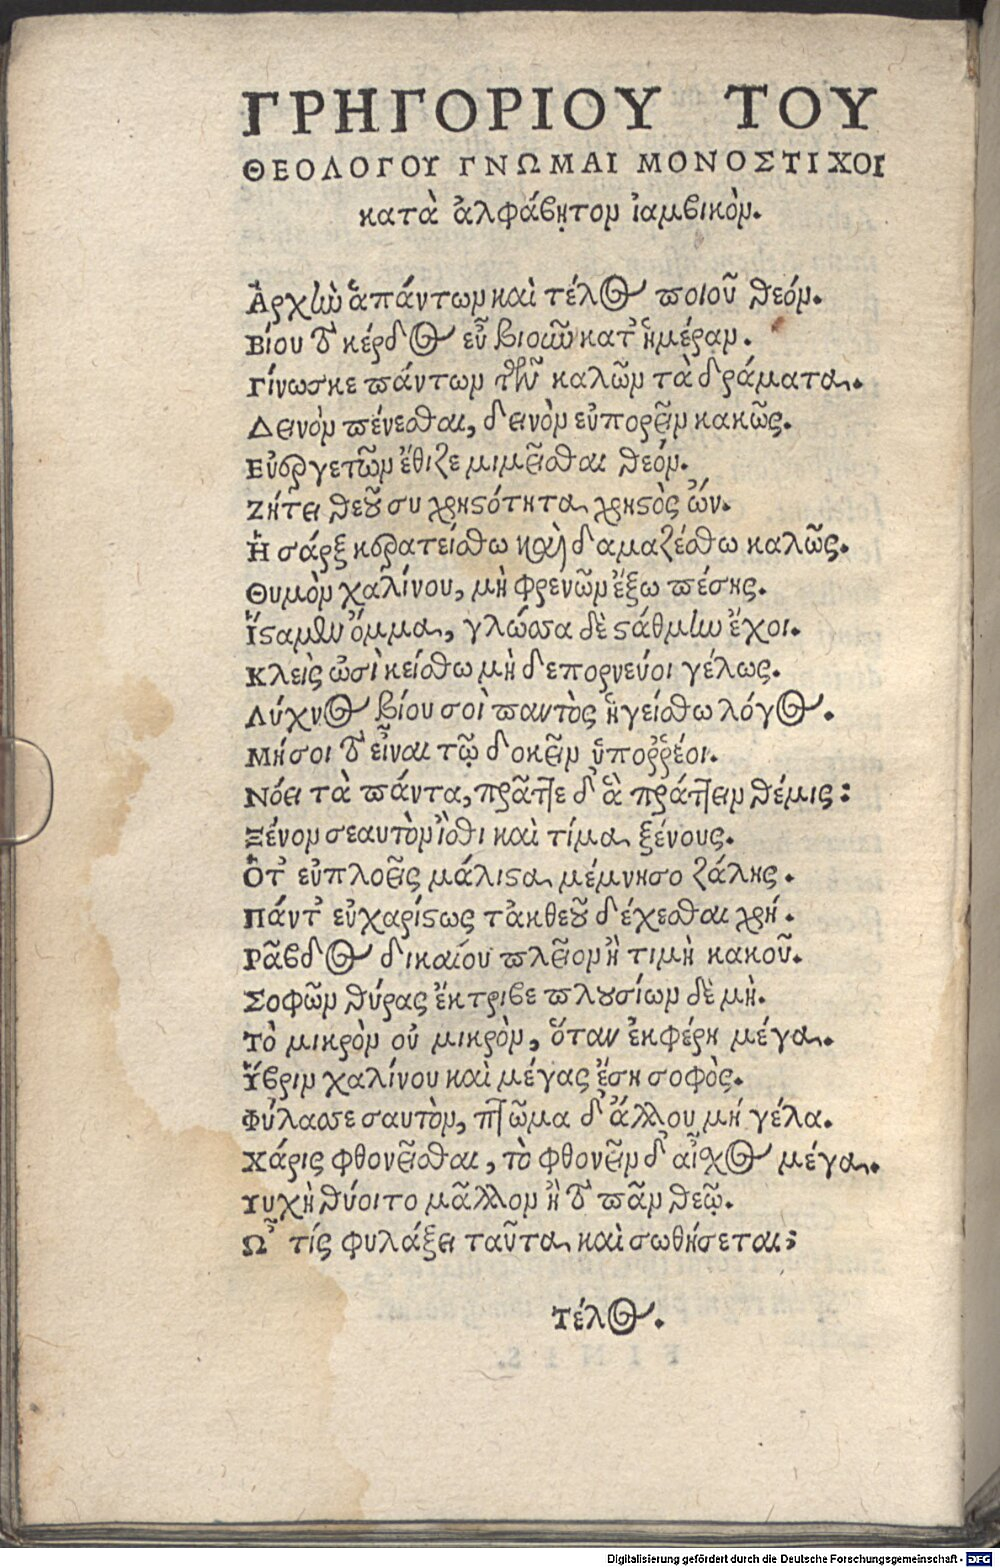 ΓΡΗΓΟΡΙΟΥ ΤΟΥ
ΘΕΟΛΟΓΟΥ ΓΝΩΜΑΙ ΜΟΝΟΣΤΙΧΟΙ
κατὰ ἀλφάβητον ἰαμβικὸν.
Ἀρχὴν ἁπάντων καὶ τέλος ποιοῦ θεόν.
Βίου τὸ κέρδος εὖ βιοῦν κατ' ἡμέραν.
Γίνωσκε πάντων τῶν καλῶν τὰ δράματα.
Δεινὸν πένεσθαι, δεινὸν εὐπορεῖν κακῶς.
Εὐεργετῶν ἔθιζε μιμεῖσθαι θεόν.
Ζήτει θεοῦ συ χρηστότητα χρηστὸς ὤν.
Ἡ σάρξ κρατείσθω καὶ δαμαζέσθω καλῶς.
Θυμὸν χαλίνου, μὴ φρενῶν ἔξω πέσης.
Ἵσταμεν ὄμμα, γλώσσα δὲ στάθμην ἔχοι.
Κλεὶς ὠσὶ κείσθω μὴ δε πορνεύοι γέλως.
Λύχνος βίου σοὶ παντὸς ἡγείσθω λόγος.
Μή σοι τὸ εἶναι τῷ δοκεῖν ὑπορῥέοι.
Νόει τὰ πάντα, πρᾶττε δ' ἃ πράττειν θέμις:
Ξένον σεαυτὸν ἴσθι καὶ τίμα ξένους.
Ὅτ' εὐπλοεῖς μάλιστα μέμνησο ζάλης.
Πάντ' εὐχαρίστως τἀκ θεοῦ δέχεσθαι χρή.
Ρᾶβδος δικαίου πλεῖον ἢ τιμὴ κακοῦ.
Σοφῶν θύρας ἔκτριβε πλουσίων δὲ μὴ.
Τὸ μικρὸν οὐ μικρὸν, ὅταν ἐκφέρη μέγα.
Ὕβριν χαλίνου καὶ μέγας ἔση σοφὸς.
Φύλασσε σαυτὸν, πτῶμα δ' ἄλλου μή γέλα.
Χάρις φθονεῖσθαι, τὸ φθονεῖν δ' αἶχος μέγα.
Ψυχὴ θύοιτο μᾶλλον ἢ τὸ πᾶν θεῷ.
Ὦ τίς φυλάξει ταῦτα καὶ σωθήσεται;
Τέλος.
Digitalisierung gefördert durch die Deutsche Forschungsgemeinschaft - DFG